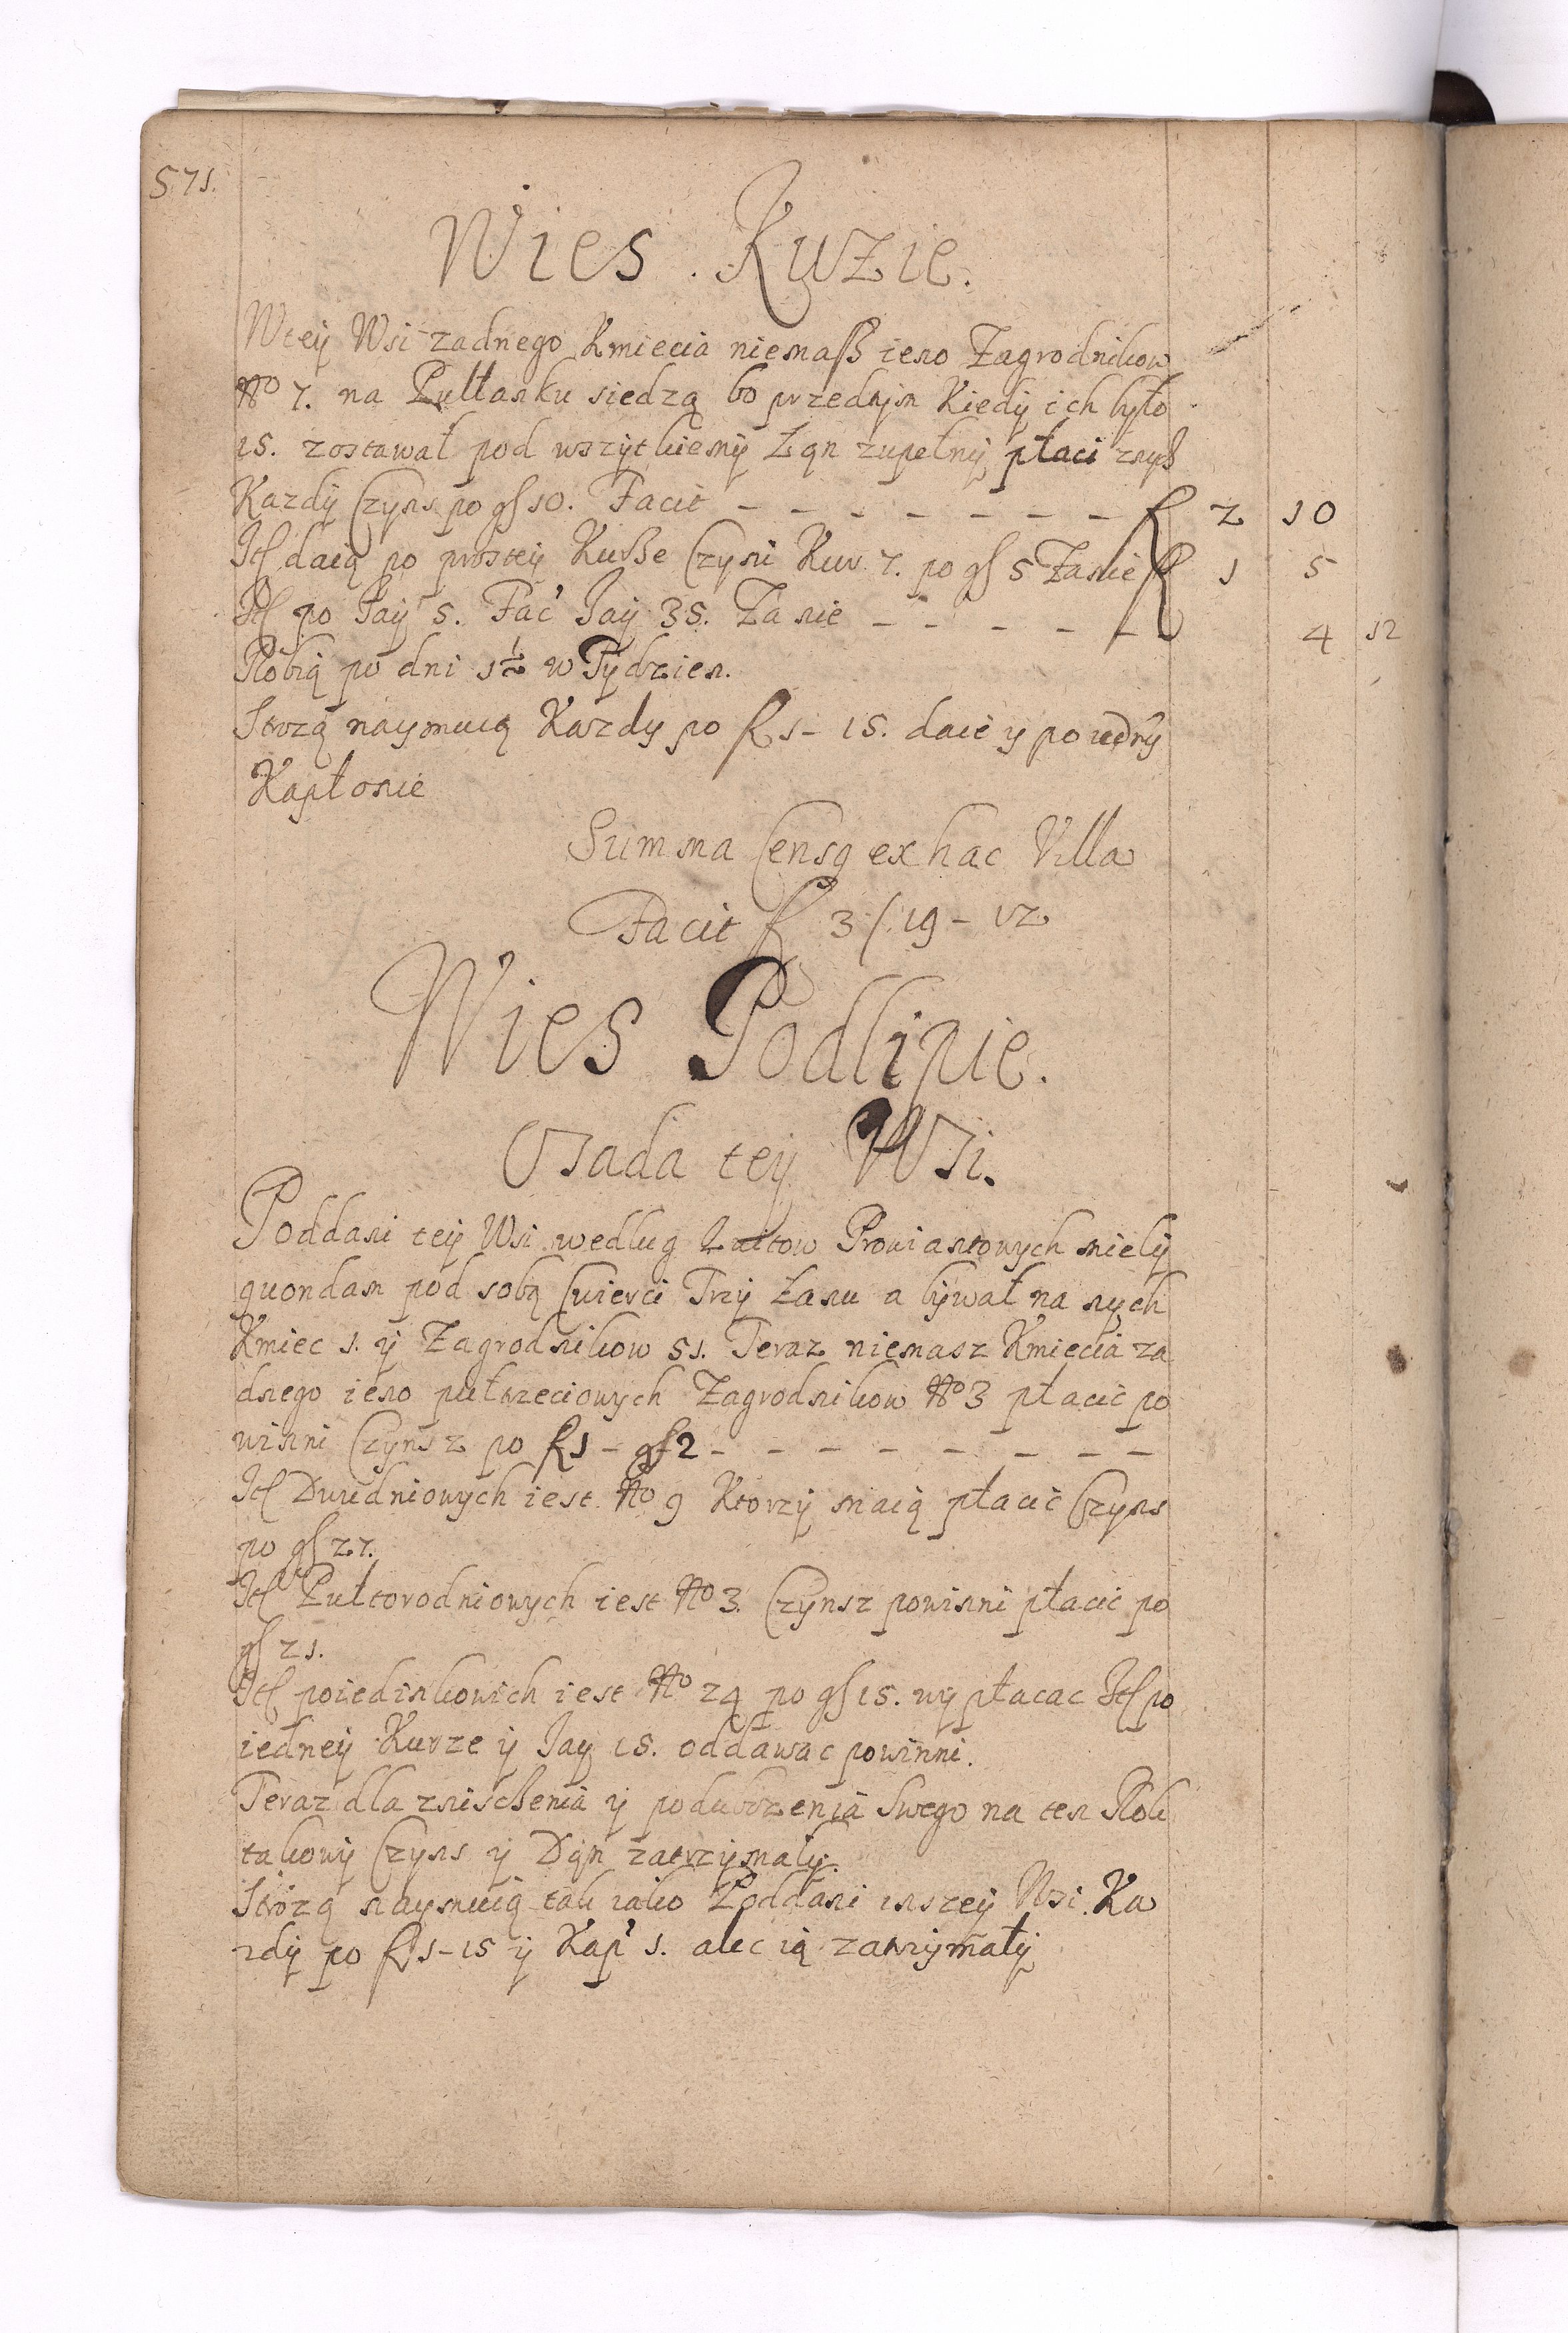 571.
Wies Kuzie.
Wtey Wsi zadnego Kmiecia niemaß ieno Zagrodnikow
No 7. na Pułłanku siedzą bo przedtym Kiedy ich było
15. zostawał pod wszytkiemy Łan zupełny, płaci znych
Kazdy Czyns po gſ 10. Facit - - - - - - - - f 2 10
Itſ daią po prostey Kurße Czyni Kur 7. po gſ 5 Zanie f 1 5
Itſ po Jay 5. Fac Jay 35. Za nie - - - - - 4 12
Robią po dni 1½ w Tydzien.
Strozą naymuią Kazdy po f 1 - 15. daie y po iedny
Kapłonie
Summa Censg ex hac Villa
Facit f 3 /. 19 - 12
Wies Podlipie.
Osada tey Wsi.
Poddani tey Wsi wedlug Kwitow Prowiantowych miely
quondam pod sobą Cwierci Trzy Łanu a bywał na nych
Kmiec 1. y Zagrodnikow 51. Teraz niemasz Kmiecia za
dnego ieno pułtrzeciowych Zagrodnikow No 3 płacic po
winni Czynsz po f 1 - gſ 2 - - - - - - - -
Itſ Dwudniowych iest No 9 Ktorzy maią płacic Czyns
po gſ 27.
Itſ Pułtorodniowych iest No 3. Czynsz powinni płacic po
gſ 21.
Itſ poiedinkowich iest No 24 po gſ 15. wypłacac Itſ po
iedney Kurze y Jay 15. oddawac powinni.
Teraz dla znisczenia y podubozenia Swego na ten Rok
takowy Czyns y Dan zatrzymaly.
Strozą naymuią tak iako Poddani inszey Wsi. Ka
zdy po f 1 - 15 y Kap 1. alec ią zatrzymały